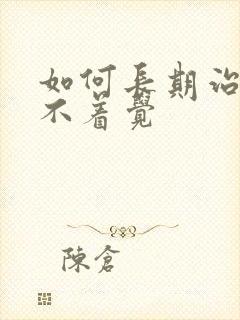 如何長期治
不着覺
陳倉